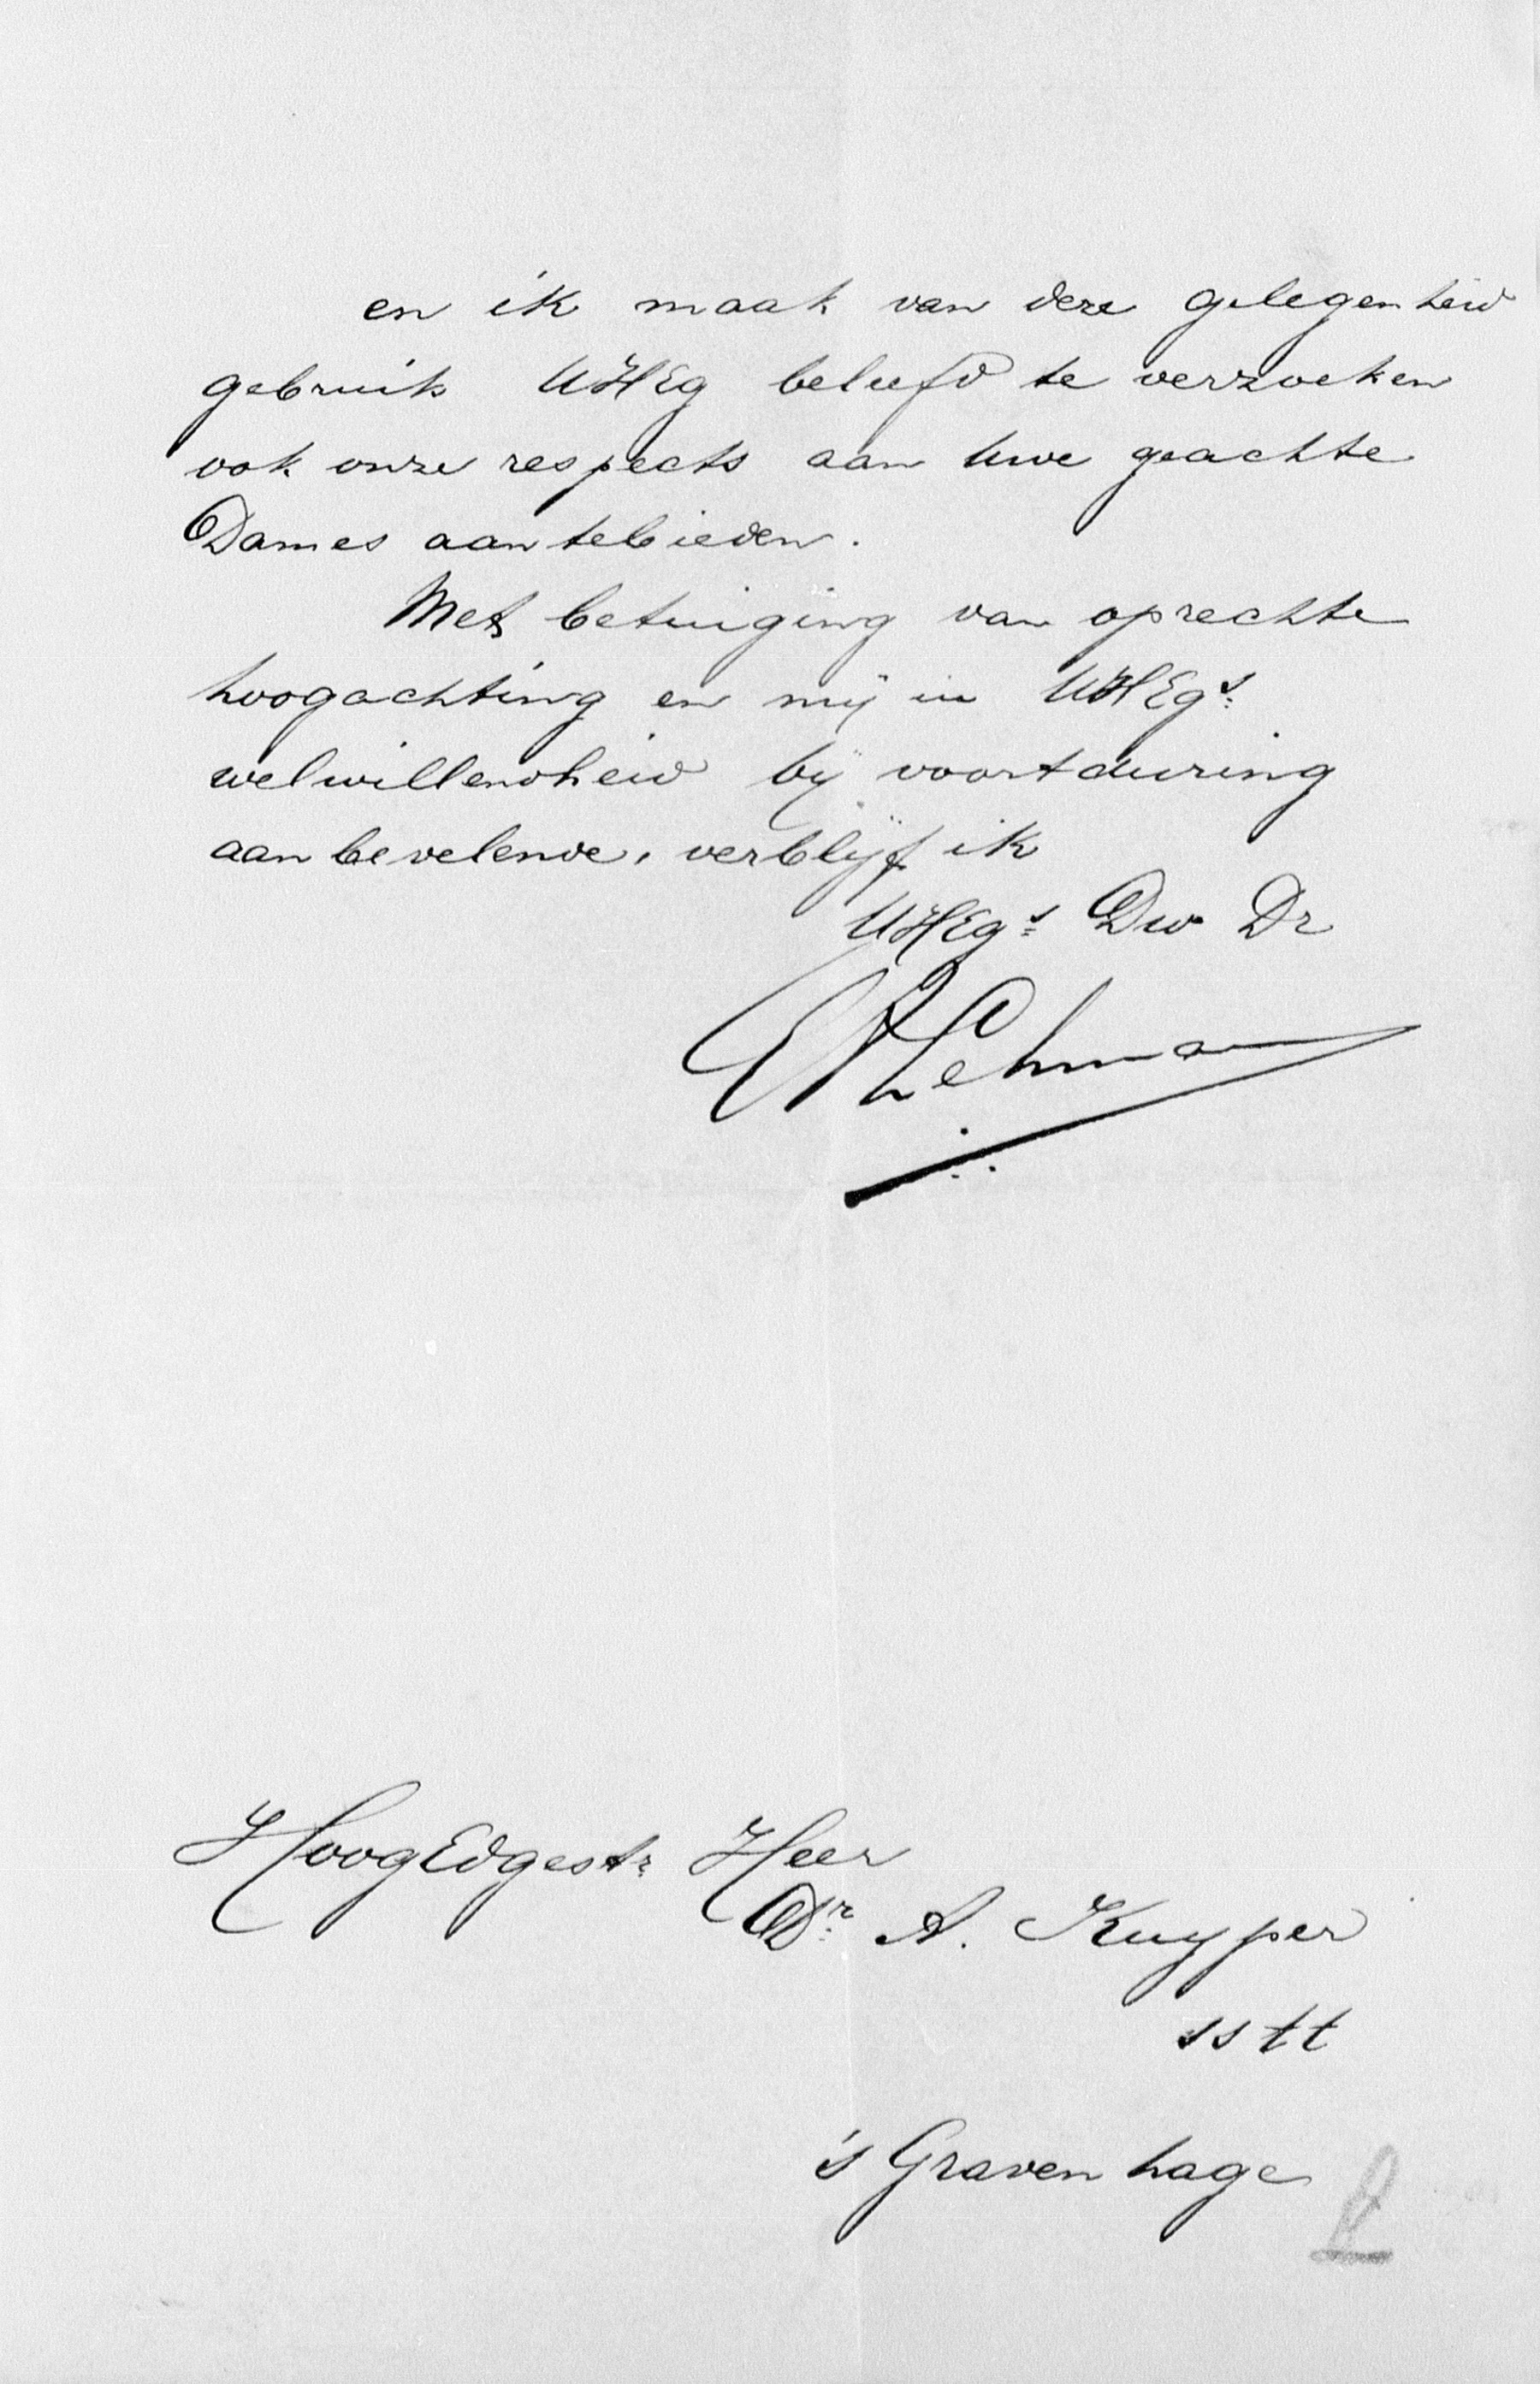 en ik maak van deze gelegenheid
gebruik UHEg beleefd te verzoeken
ook onze respects aan Uwe geachte
Dames aantebieden.
Met betuiging van oprechte
hoogachting en mij in UHEgs
welwillendheid bij voortduring
aanbevelende, verblijf ik
UHEgs Dw Dr
Lehman
HoogEdgestr Heer
Dr A. Kuyper
sstt
's Gravenhage